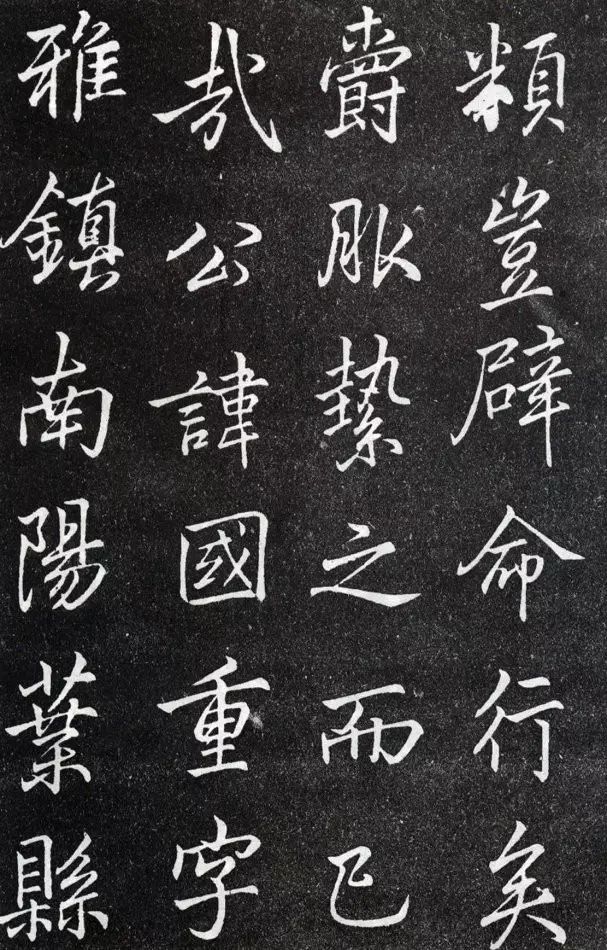 類豈辟命行矣
爵服縶之而已
哉公諱國重字
雅鎮南陽葉縣